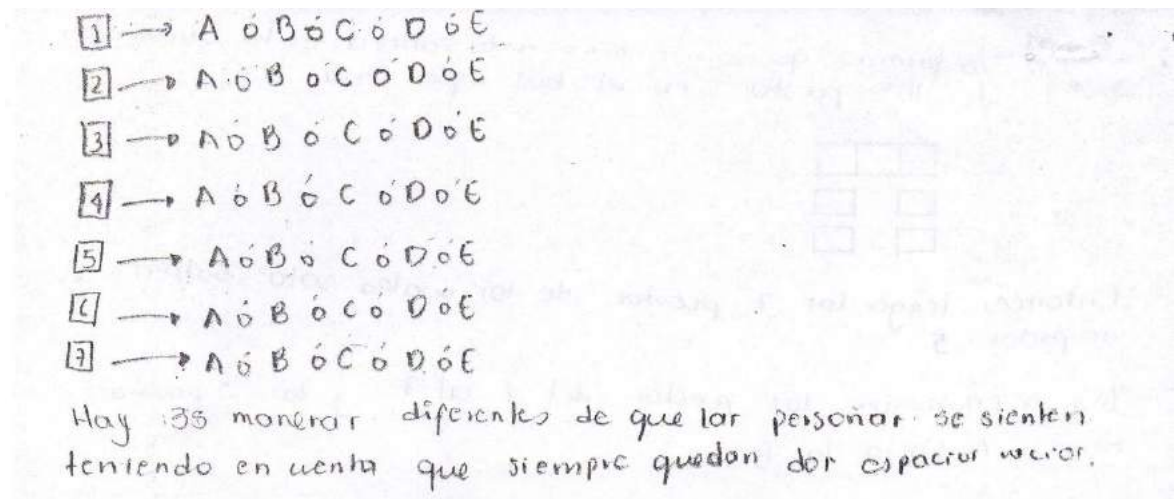 1 → A ó B ó C ó D ó E
2 → A ó B ó C ó D ó E
3 → A ó B ó C ó D ó E
4 → A ó B ó C ó D ó E
5 → A ó B ó C ó D ó E
6 → A ó B ó C ó D ó E
7 → A ó B ó C ó D ó E
Hay 35 maneras diferentes de que las personas se sienten
teniendo en cuenta que siempre quedan dos espacios vacios.